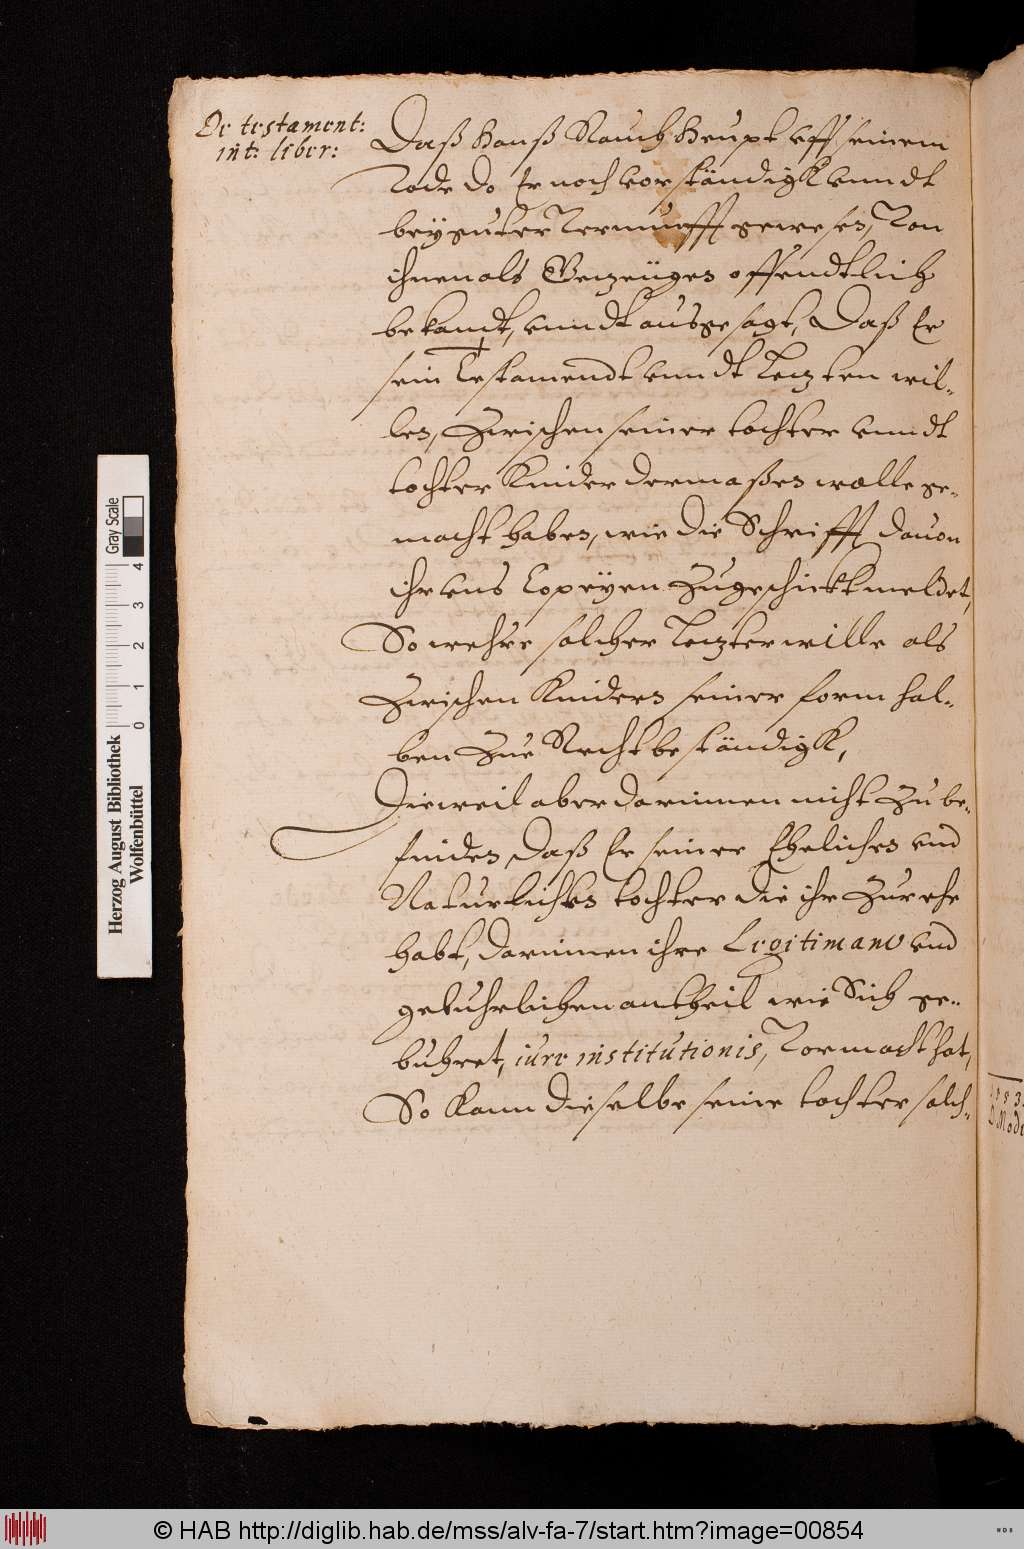 De testament:
int: liber:
Daß Hanß Rauch Heupt vff seinem
Tode do Er noch vorständigk vnndt
bey guter Vernunfft gewesen, Von
ihnen als Gezeuges offendtlich
bekandt, vnndt ausgesagt, Daß Er
sein Testamendt vnndt Letzten wil-
len, Zwischen seiner tochter vnndt
tochter Kinder dermaßen wolle ge-
macht haben, wie die Schrifft dauon
ihr vns Copeyen Zugeschickt meldet,
So wehre solcher Letzter wille als
Zwischen Kindern seiner form hal-
ben Zue Recht bestándigk,
Dieweil aber darinnen nicht Zu be-
finden, Daß Er seiner Ehelichen vnd
Naturlichen tochter die ihr Zur ehe
habt, darinnen ihre Legitimam vnd
gebuhrlichen antheil wie Sich ge-
buhret, iure institutionis, Vormacht hat,
So kann dieselbe seine tochter solch-
Gray Scale
0 1 2 3 4
Herzog August Bibliothek
Wolfenbüttel
© HAB http://diglib.hab.de/mss/alv-fa-7/start.htm?image=00854